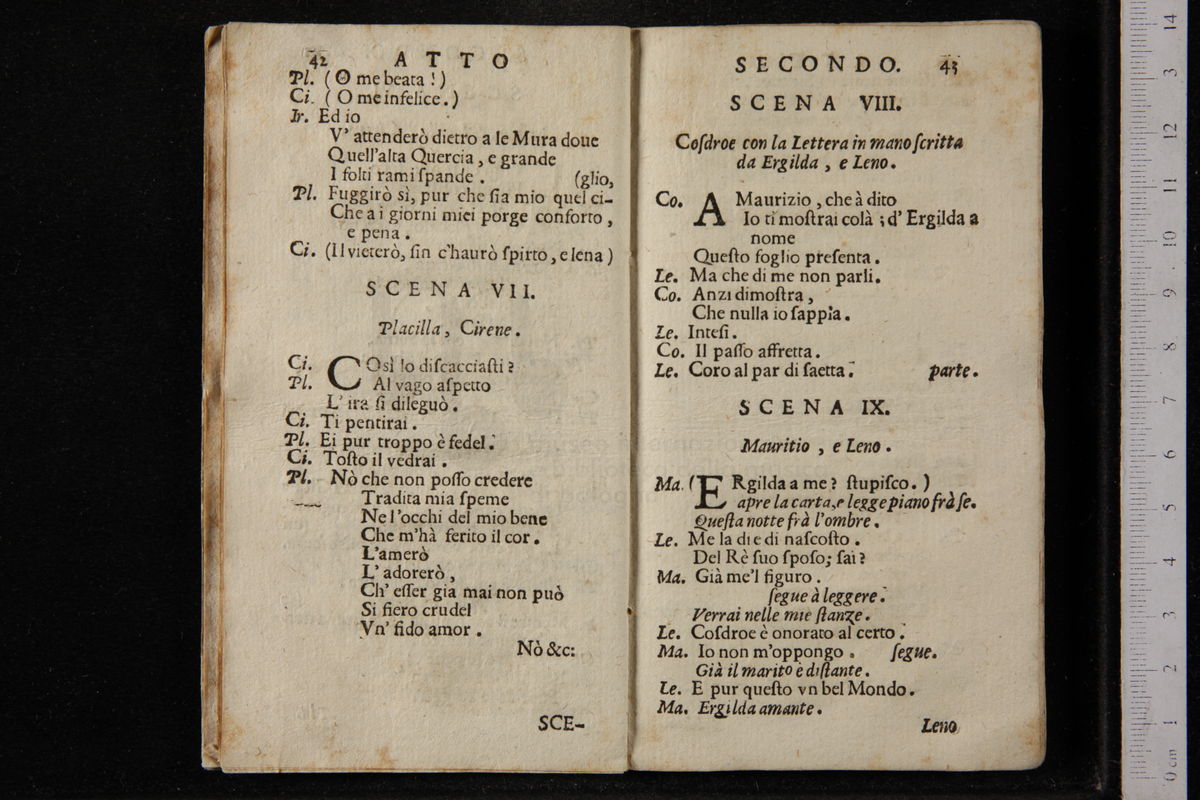 42 ATTO
Pl. (O me beata!)
Ci. (O me infelice.)
Ir. Ed io
V' attenderò dietro a le Mura doue
Quell'alta Quercia, e grande
I folti rami ſpande. (glio,
Pl. Fuggirò sì, pur che ſia mio quel ci-
Che a i giorni miei porge conforto,
e pena.
Ci. (Il vieterò, ſin c'haurò ſpirto, e lena)
SCENA VII.
Placilla, Cirene.
Ci. COsì lo diſcacciaſti?
Pl. Al vago aſpetto
L' ira ſi dileguò.
Ci. Ti pentirai.
Pl. Ei pur troppo è fedel.
Ci. Toſto il vedrai.
Pl. Nò che non poſſo credere
Tradita mia ſpeme
Ne l'occhi del mio bene
Che m'hà ferito il cor.
L'amerò
L' adorerò,
Ch' eſſer gia mai non può
Si fiero crudel
Vn' fido amor.
Nò &c:
SCE-
SECONDO. 43
SCENA VIII.
Coſdroe con la Lettera in mano ſcritta
da Ergilda, e Leno.
Co. A Maurizio, che à dito
Io ti moſtrai colà; d' Ergilda a
nome
Queſto foglio preſenta.
Le. Ma che di me non parli.
Co. Anzi dimoſtra,
Che nulla io ſappia.
Le. Inteſi.
Co. Il paſſo affretta.
Le. Coro al par di ſaetta. parte.
SCENA IX.
Mauritio, e Leno.
Ma. (ERgilda a me? ſtupiſco.)
apre la carta, e legge piano frà ſe.
Queſta notte frà l'ombre.
Le. Me la diedi naſcoſto.
Del Rè ſuo ſpoſo; ſai?
Ma. Già me'l figuro.
ſegue à leggere.
Verrai nelle mie ſtanze.
Le. Coſdroe è onorato al certo.
Ma. Io non m'oppongo. ſegue.
Già il marito è diſtante.
Le. E pur queſto vn bel Mondo.
Ma. Ergilda amante.
Leno
0 cm 1 2 3 4 5 6 7 8 9 10 11 12 3 14